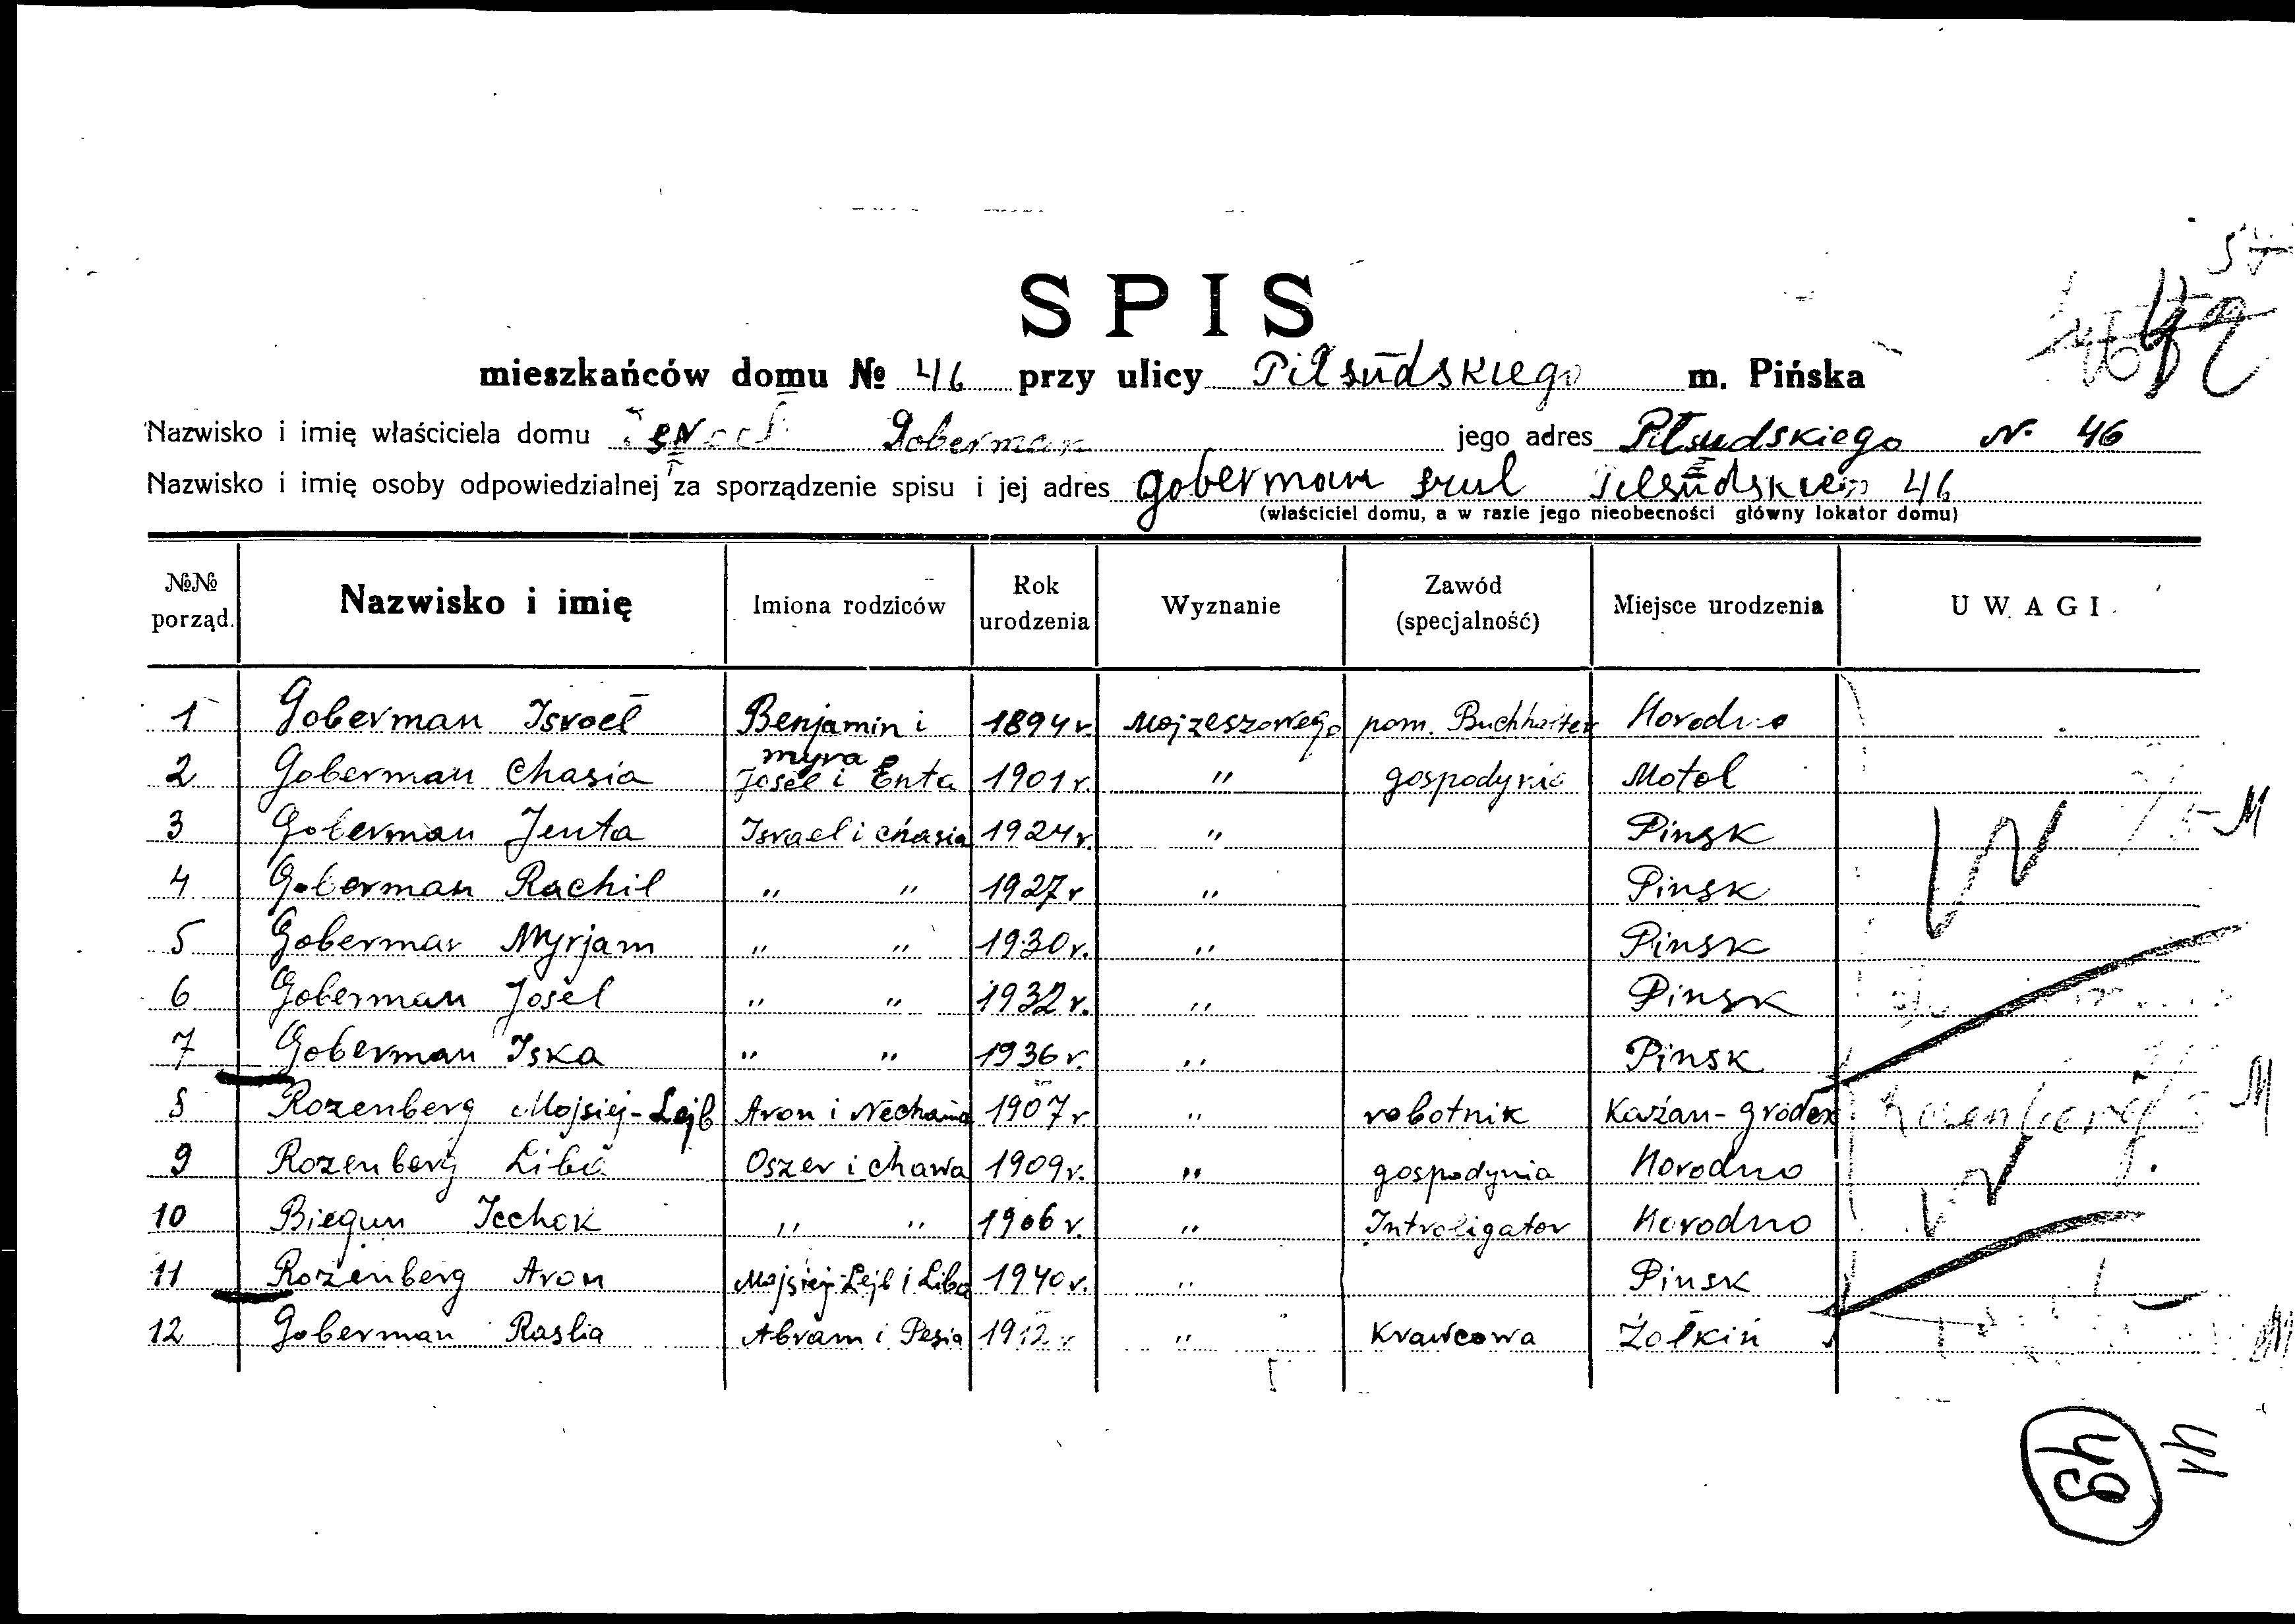 SPIS
mieszkańców domu № 46 przy ulicy Piłsudskiego m. Pińska
Nazwisko i imię właściciela domu Goberman jego adres Piłsudskiego N. 46
Nazwisko i imię osoby odpowiedzialnej za sporządzenie spisu i jej adres Goberman Srul Pilsudskiego 46
(właściciel domu, a w razie jego nieobecności główny lokator domu)
№№ porząd. Nazwisko i imię Imiona rodziców Rok urodzenia Wyznanie Zawód (specjalność) Miejsce urodzenia UWAGI
1 Goberman Israel Benjamin i Myra 1894 r. Mojżeszowego pom. Buchhalter Horodno
2 Goberman Chasia Josel i Enta 1901 r. " gospodynia Motol
3 Goberman Jenta Israel i Chasia 1924 r. " Pinsk
4 Goberman Rachil " " 1927 r " Pinsk
5 Goberman Myrjam " " 1930 r. " Pinsk
6 Goberman Josel " " 1932 r. " Pinsk
7 Goberman Iska " " 1936 r. " Pinsk
8 Rozenberg Mojsiej-Lejb Aron i Nechama 1907 r. " robotnik Każan-gródek
9 Rozenberg Liba Oszer i Chawa 1909 r. " gospodynia Horodno
10 Biegun Icchok " " 1906 r. " Introligator Horodno
11 Rozenberg Aron Mojsiej-Lejb i Liba 1940 r. " Pinsk
12 Goberman Raslia Abram i Pesia 1912 r " Krawcowa Żołkiń
49